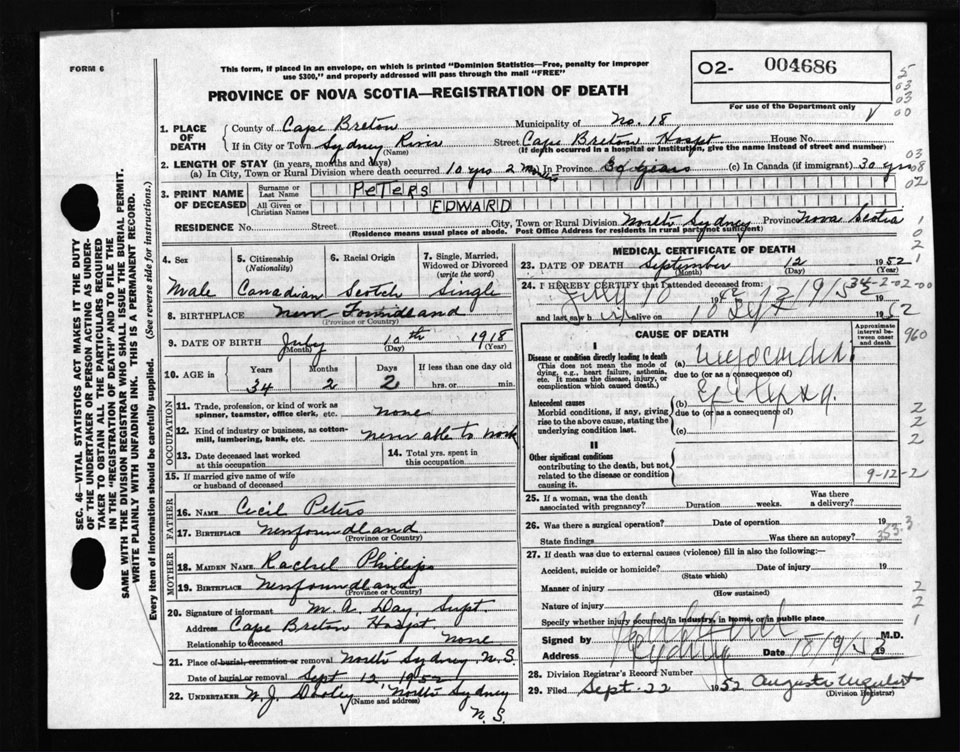 FORM 6
This form, if placed in an envelope, on which is printed "Dominion Statistics—Free, penalty for improper
use $300," and properly addressed will pass through the mail "FREE"
02- 004686
For use of the Department only
PROVINCE OF NOVA SCOTIA—REGISTRATION OF DEATH
1. PLACE OF DEATH
County of Cape Breton Municipality of No. 18
If in City or Town Sydney River Street Cape Breton Hospt House No.
(Name) (If death occurred in a hospital or institution, give the name instead of street and number)
2. LENGTH OF STAY (in years, months and days)
(a) In City, Town or Rural Division where death occurred 10 yrs 2 mths In Province 30 years (c) In Canada (if immigrant) 30 yrs
3. PRINT NAME OF DECEASED
Surname or Last Name PETERS
All Given or Christian Names EDWARD
RESIDENCE No. Street City, Town or Rural Division North Sydney Province Nova Scotia
(Residence means usual place of abode. Post Office Address for residents in rural parts not sufficient)
4. Sex 5. Citizenship (Nationality) 6. Racial Origin 7. Single, Married, Widowed or Divorced (write the word)
Male Canadian Scotch Single
8. BIRTHPLACE New Foundland
(Province or Country)
9. DATE OF BIRTH July 10th 1918
(Month) (Day) (Year)
10. AGE in Years Months Days If less than one day old
34 2 2 hrs. or min.
OCCUPATION
11. Trade, profession, or kind of work as
spinner, teamster, office clerk, etc. none
12. Kind of industry or business, as cotton-
mill, lumbering, bank, etc. never able to work
13. Date deceased last worked
at this occupation
14. Total yrs. spent in
this occupation
15. If married give name of wife
or husband of deceased
FATHER
16. NAME Cecil Peters
17. BIRTHPLACE Newfoundland
(Province or Country)
MOTHER
18. MAIDEN NAME Rachel Phillips
19. BIRTHPLACE Newfoundland
(Province or Country)
20. Signature of informant M. A. Day, Supt.
Address Cape Breton Hospt.
Relationship to deceased none
21. Place of burial, cremation or removal North Sydney, N.S.
Date of burial or removal Sept 12 1952
22. UNDERTAKER W. J. Dooley North Sydney
(Name and address)
N.S.
MEDICAL CERTIFICATE OF DEATH
23. DATE OF DEATH September 12 1952
(Month) (Day) (Year)
24. I HEREBY CERTIFY that I attended deceased from:
July 10 1942 12/9/52
and last saw alive on 10 Sept 1952
CAUSE OF DEATH
Approximate interval between onset and death
I
Disease or condition directly leading to death
(This does not mean the mode of
dying, e.g., heart failure, asthenia,
etc. It means the disease, injury, or
complication which caused death.)
(a)
due to (or as a consequence of)
Antecedent causes
Morbid conditions, if any, giving
rise to the above cause, stating the
underlying condition last.
(b) Epilepsy
due to (or as a consequence of)
(c)
II
Other significant conditions
contributing to the death, but not
related to the disease or condition
causing it.
9-12-2
25. If a woman, was the death
associated with pregnancy? Duration weeks. Was there
a delivery?
26. Was there a surgical operation? Date of operation 19
State findings Was there an autopsy? 353.3
27. If death was due to external causes (violence) fill in also the following:—
Accident, suicide or homicide? Date of injury 19
(State which)
Manner of injury
(How sustained)
Nature of injury
Specify whether injury occurred in industry, in home, or in public place
Signed by M.D.
Address Sydney Date 18/9/52 19
28. Division Registrar's Record Number
29. Filed Sept. 22 1952
(Division Registrar)
SEC. 46—VITAL STATISTICS ACT MAKES IT THE DUTY
OF THE UNDERTAKER OR PERSON ACTING AS UNDER-
TAKER TO OBTAIN ALL THE PARTICULARS REQUIRED
IN THE "REGISTRATION OF DEATH" AND TO FILE THE
SAME WITH THE DIVISION REGISTRAR WHO SHALL ISSUE THE BURIAL PERMIT.
WRITE PLAINLY WITH UNFADING INK. THIS IS A PERMANENT RECORD.
Every item of information should be carefully supplied. (See reverse side for instructions.)
5
03
03
00
03
08
02
1
0
2
1
34-2-02-00
960
2
2
2
2
2
1